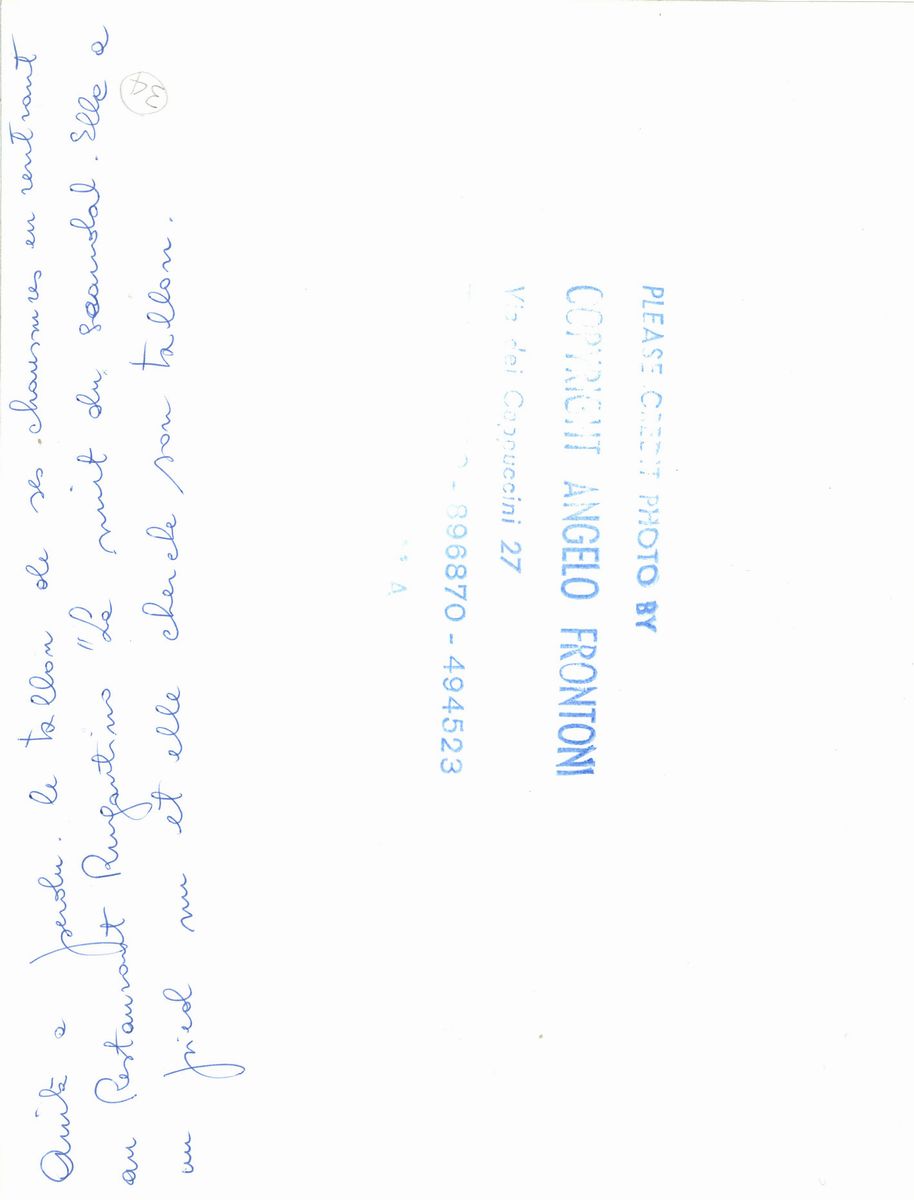 Anita a perdu. le tallon de ses chaussures en rentrant
au Restaurant Rugantino "La nuit du scandal. Elle a
un pied nu et elle cherche son tallon.
PLEASE CREDIT PHOTO BY
COPYRIGHT ANGELO FRONTONI
Via dei Cappuccini 27
- 896870 - 494523
A